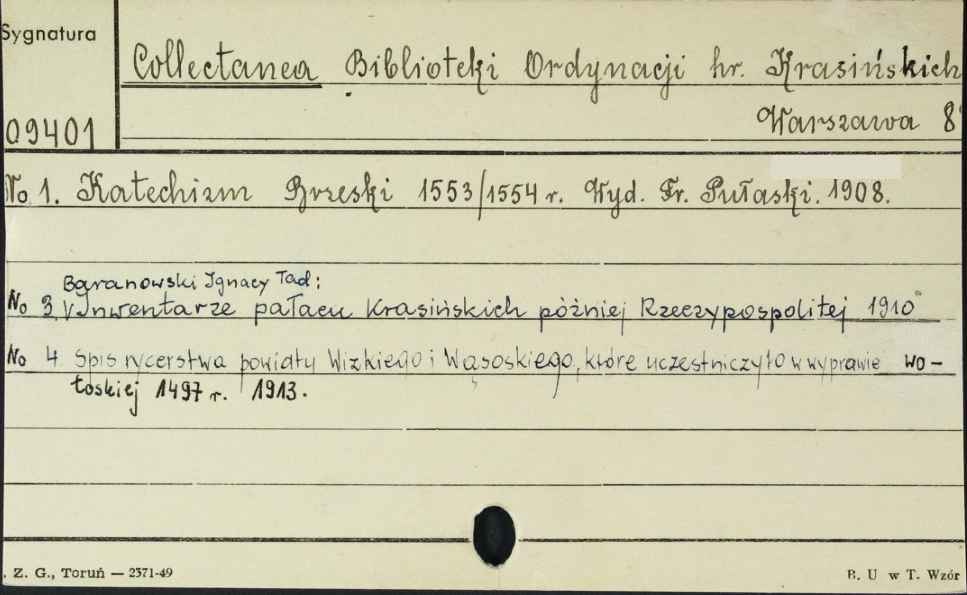 Sygnatura
Collectanea Biblioteki Ordynacji hr. Krasińskich
Warszawa 8°
09401
No 1. Katechizm Brzeski 1553/1554 r. Wyd. Fr. Pułaski. 1908.
Baranowski Ignacy Tad:
No 3. Inwentarze pałacu Krasińskich później Rzeczypospolitej 1910
No 4. Spis rycerstwa powiatu Wizkiego i Wąsoskiego, które uczestniczyło w wyprawie wo-
łoskiej 1497 r. 1913.
. Z. G., Toruń — 2371-49
B. U w T. Wzór